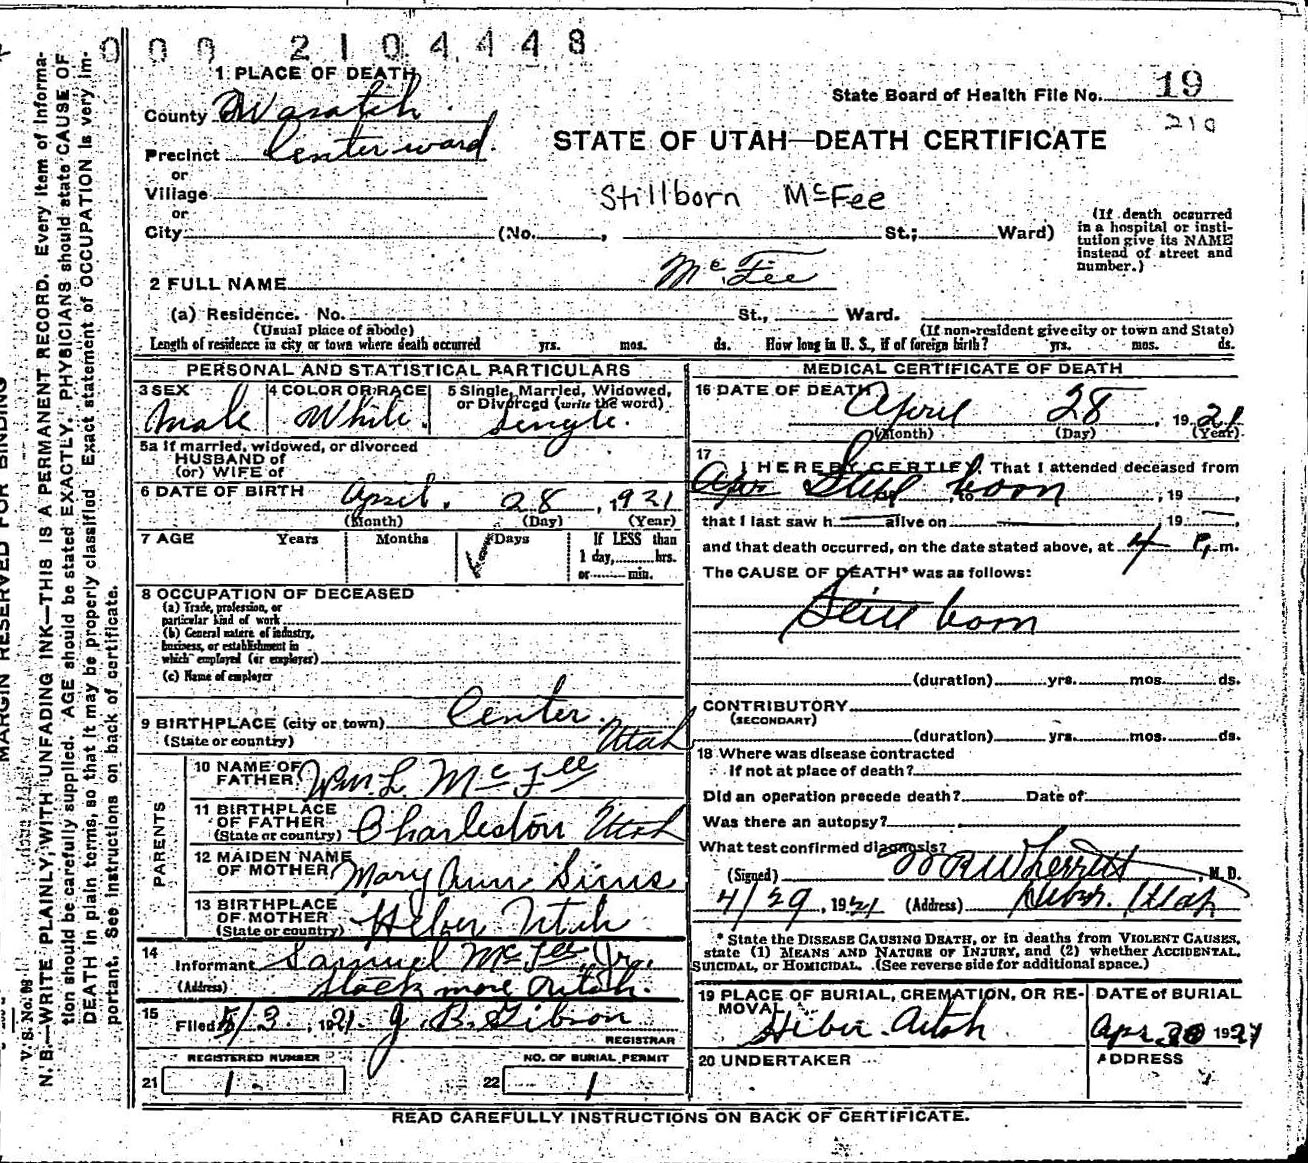 0 0 0 2 1 0 4 4 4 8
1 PLACE OF DEATH
County Wasatch.
Precinct Center ward.
or
Village
or
City (No. , St.; Ward)
State Board of Health File No. 19
210
STATE OF UTAH—DEATH CERTIFICATE
Stillborn McFee
(If death occurred
in a hospital or insti-
tution give its NAME
instead of street and
number.)
2 FULL NAME McFee
(a) Residence. No. St., Ward.
(Usual place of abode) (If non-resident give city or town and State)
Length of residence in city or town where death occurred yrs. mos. ds. How long in U. S., if of foreign birth? yrs. mos. ds.
PERSONAL AND STATISTICAL PARTICULARS
3 SEX 4 COLOR OR RACE 5 Single, Married, Widowed,
or Divorced (write the word)
Male White. Single.
5a If married, widowed, or divorced
HUSBAND of
(or) WIFE of
6 DATE OF BIRTH April. 28, 1921
(Month) (Day) (Year)
7 AGE Years Months Days If LESS than
1 day, hrs.
or min.
8 OCCUPATION OF DECEASED
(a) Trade, profession, or
particular kind of work
(b) General nature of industry,
business, or establishment in
which employed (or employer)
(c) Name of employer
9 BIRTHPLACE (city or town) Center.
(State or country) Utah
PARENTS
10 NAME OF
FATHER Wm. L. McFee
11 BIRTHPLACE
OF FATHER
(State or country) Charleston Utah
12 MAIDEN NAME
OF MOTHER Mary Ann Sims
13 BIRTHPLACE
OF MOTHER
(State or country) Heber Utah
14
Informant Samuel McFee Jr.
(Address) Utah.
15
Filed 5/3, 1921. J. B. Gibson
REGISTRAR
REGISTERED NUMBER NO. OF BURIAL PERMIT
21 1. 22 1
MEDICAL CERTIFICATE OF DEATH
16 DATE OF DEATH April 28, 1921
(Month) (Day) (Year).
17
I HEREBY CERTIFY, That I attended deceased from
Still born , 19 ,
that I last saw h alive on 19 ,
and that death occurred, on the date stated above, at 4 P. m.
The CAUSE OF DEATH* was as follows:
Still born
(duration) yrs. mos. ds.
CONTRIBUTORY
(SECONDARY)
(duration) yrs. mos. ds.
18 Where was disease contracted
if not at place of death?
Did an operation precede death? Date of
Was there an autopsy?
What test confirmed diagnosis?
(Signed) Wherritt, M. D.
4/29, 1921 (Address) Heber. Utah
* State the DISEASE CAUSING DEATH, or in deaths from VIOLENT CAUSES,
state (1) MEANS AND NATURE OF INJURY, and (2) whether ACCIDENTAL,
SUICIDAL, or HOMICIDAL. (See reverse side for additional space.)
19 PLACE OF BURIAL, CREMATION, OR RE-
MOVAL
Heber Utah
DATE of BURIAL
Apr. 30 1921
20 UNDERTAKER
ADDRESS
READ CAREFULLY INSTRUCTIONS ON BACK OF CERTIFICATE.
MARGIN RESERVED FOR BINDING
V. S. No. 98
N. B.—WRITE PLAINLY WITH UNFADING INK—THIS IS A PERMANENT RECORD. Every item of informa-
tion should be carefully supplied. AGE should be stated EXACTLY. PHYSICIANS should state CAUSE OF
DEATH in plain terms, so that it may be properly classified. Exact statement of OCCUPATION is very im-
portant. See instructions on back of certificate.